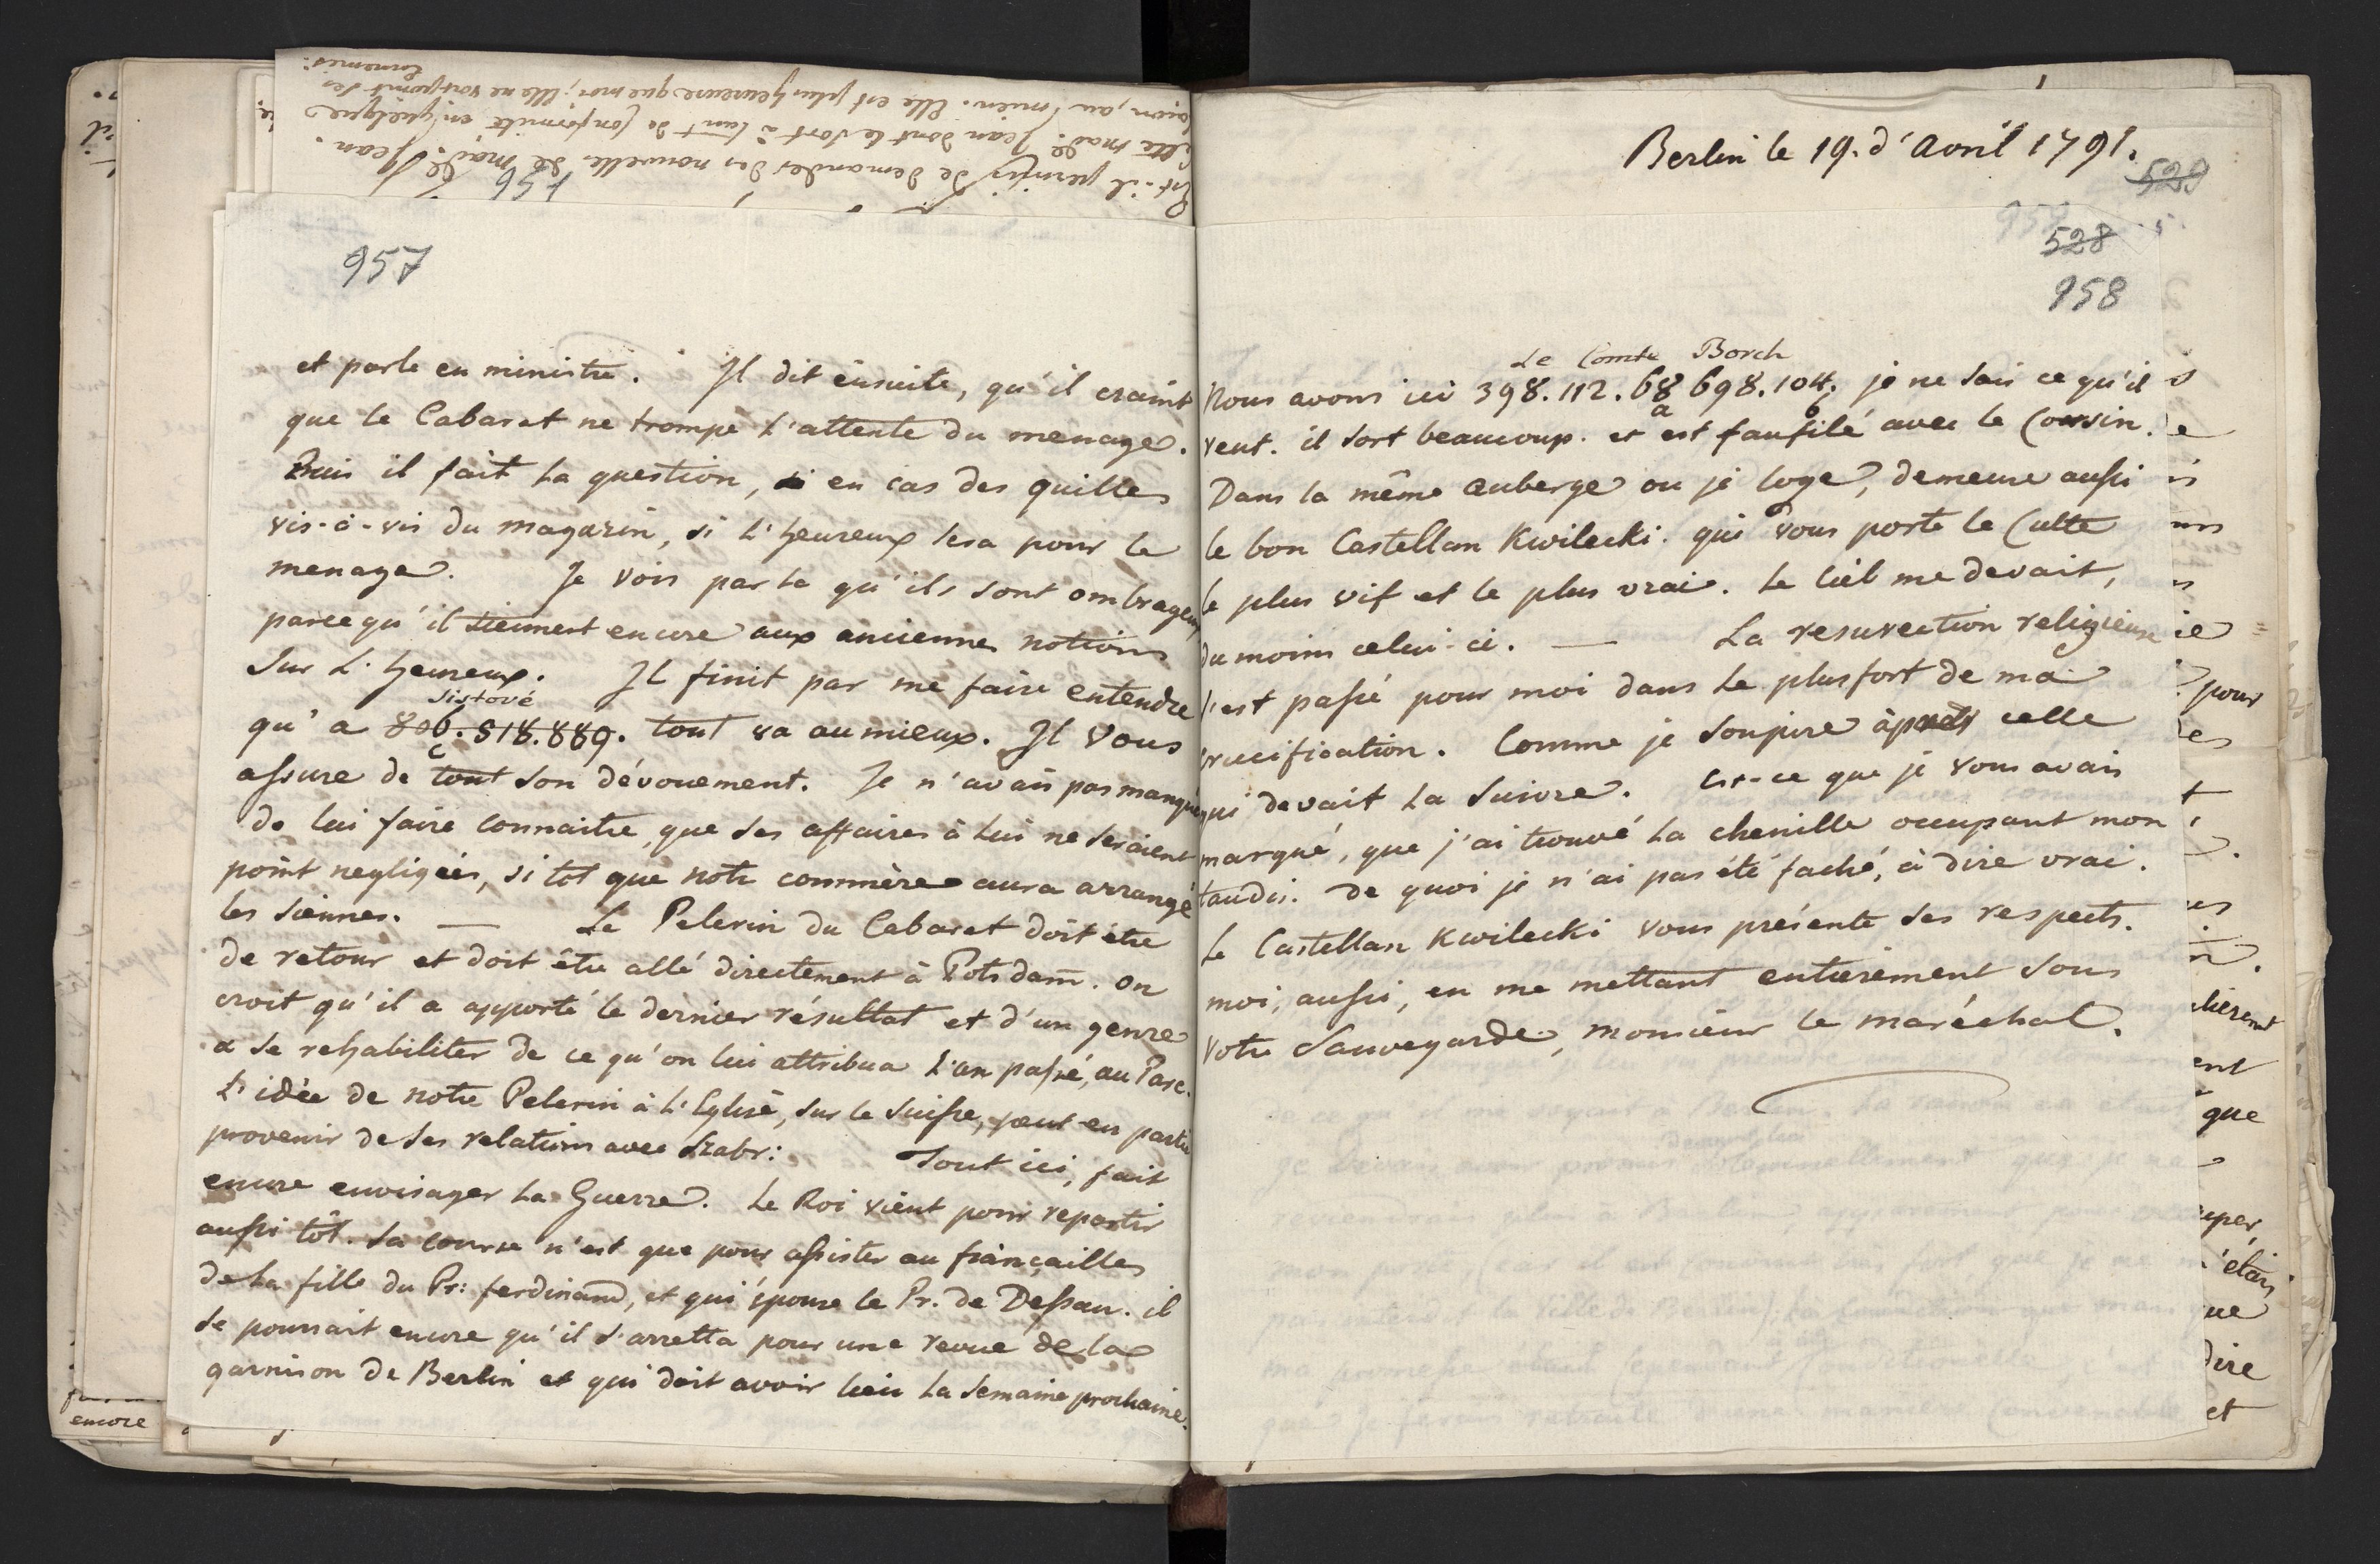 Est-il permis de demander des nouvelles de mad. Jean.
Cette mad. Jean dont le sort a tant de conformité en quelque
façon, au mien. Elle est plus heureuse que moi; Elle ne voit point ses
957
et parle en ministre. Il dit ensuite, qu'il craint
que le Cabaret ne trompe l'attente du menage.
Puis il fait la question, en cas des quilles
vis-à-vis du magazin, si l'heureux sera pour le
menage. Je vois par la qu'ils sont ombrageux
parcequ'il tiennent encore aux anciennes notions
sur l'heureux. Il finit par me faire entendre
Sistové
qu'a 806. 518. 889. tout va au mieux. Il vous
assure de tout son dévouement. Je n'avais pas manqué
de lui faire connaitre, que ses affaires à lui ne seraient
point negligées, si tot que notre commère aura arrangé
les siennes. — Le Pelerin du Cabaret doit être
de retour et doit être allé directement à Potsdam. On
croit qu'il a apporté le dernier résultat et d'un genre
a se rehabiliter de ce qu'on lui attribua l'an passé, au Parc.
L'idée de notre Pelerin à l'Eglise, sur le suisse, peut en partie
provenir de ses relations avec Szabr: Tout ici, fait
encore envisager la Guerre. Le Roi vient pour repartir
aussi tôt. Sa course n'est que pour assister au fiançailles
de la fille du Pr: ferdinand, et qui épouse le Pr. de Dessau. il
se pourrait encore qu'il s'arretta pour une revue de la
garnison de Berlin et qui doit avoir lieu la semaine prochaine.
encore
Berlin le 19. d'Avril 1791.
529
528
958
Le Comte Borch
Nous avons ici 398. 112. 68 698. 104. je ne sais ce qu'il
veut. il sort beaucoup. et est faufilé avec le Cousin.
Dans la même auberge ou je loge, demeure aussi
le bon Castellan Kwilecki. qui vous porte le Culte
le plus vif et le plus vrai. Le Ciel me devait,
du moins celui-ci. — La resurection religieuse
s'est passé pour moi dans le plus fort de ma
crucification. Comme je soupire après celle
qui devait la suivre. Est-ce que je vous avais
marqué, que j'ai trouvé la chenille occupant mon
taudis. De quoi je n'ai pas été faché, à dire vrai.
Le Castellan Kwilecki vous présente ses respects.
moi, aussi, en me mettant entierement sous
votre sauvegarde, monsieur le maréchal.
pour
que
dire
et